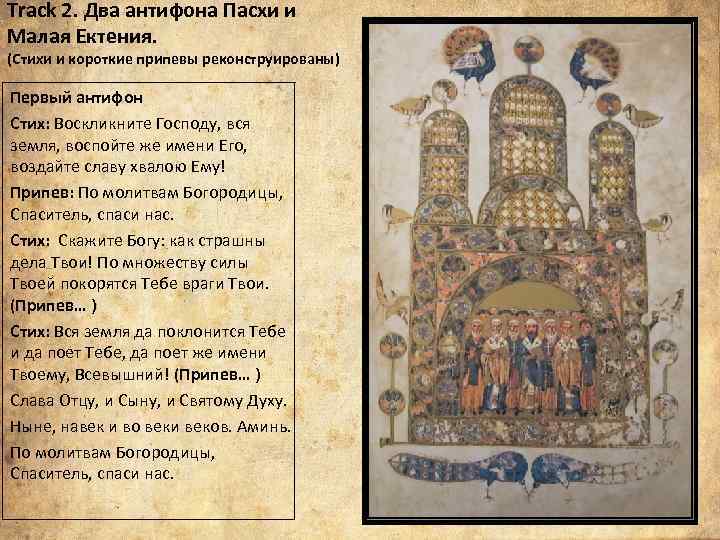 Track 2. Два антифона Пасхи и
Малая Ектения.
(Стихи и короткие припевы реконструированы)
Первый антифон
Стих: Воскликните Господу, вся
земля, воспойте же имени Его,
воздайте славу хвалою Ему!
Припев: По молитвам Богородицы,
Спаситель, спаси нас.
Стих: Скажите Богу: как страшны
дела Твои! По множеству силы
Твоей покорятся Тебе враги Твои.
(Припев... )
Стих: Вся земля да поклонится Тебе
и да поет Тебе, да поет же имени
Твоему, Всевышний! (Припев... )
Слава Отцу, и Сыну, и Святому Духу.
Ныне, навек и во веки веков. Аминь.
По молитвам Богородицы,
Спаситель, спаси нас.